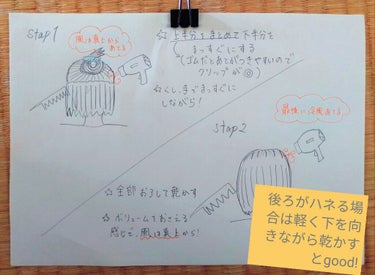 stap1
風は真上から
あてる
☆ 上半分をまとめて下半分を
まっすぐにする
(ゴムだとあとがつきやすいので
クリップが◎)
☆ くしでまっすぐに
しながら!
stap2
最後に冷風あてる
☆ 全部おろして乾かす
☆ ボリュームをおさえる
感じで、風は真上から!
後ろがハネる場
合は軽く下を向
きながら乾かす
とgood!